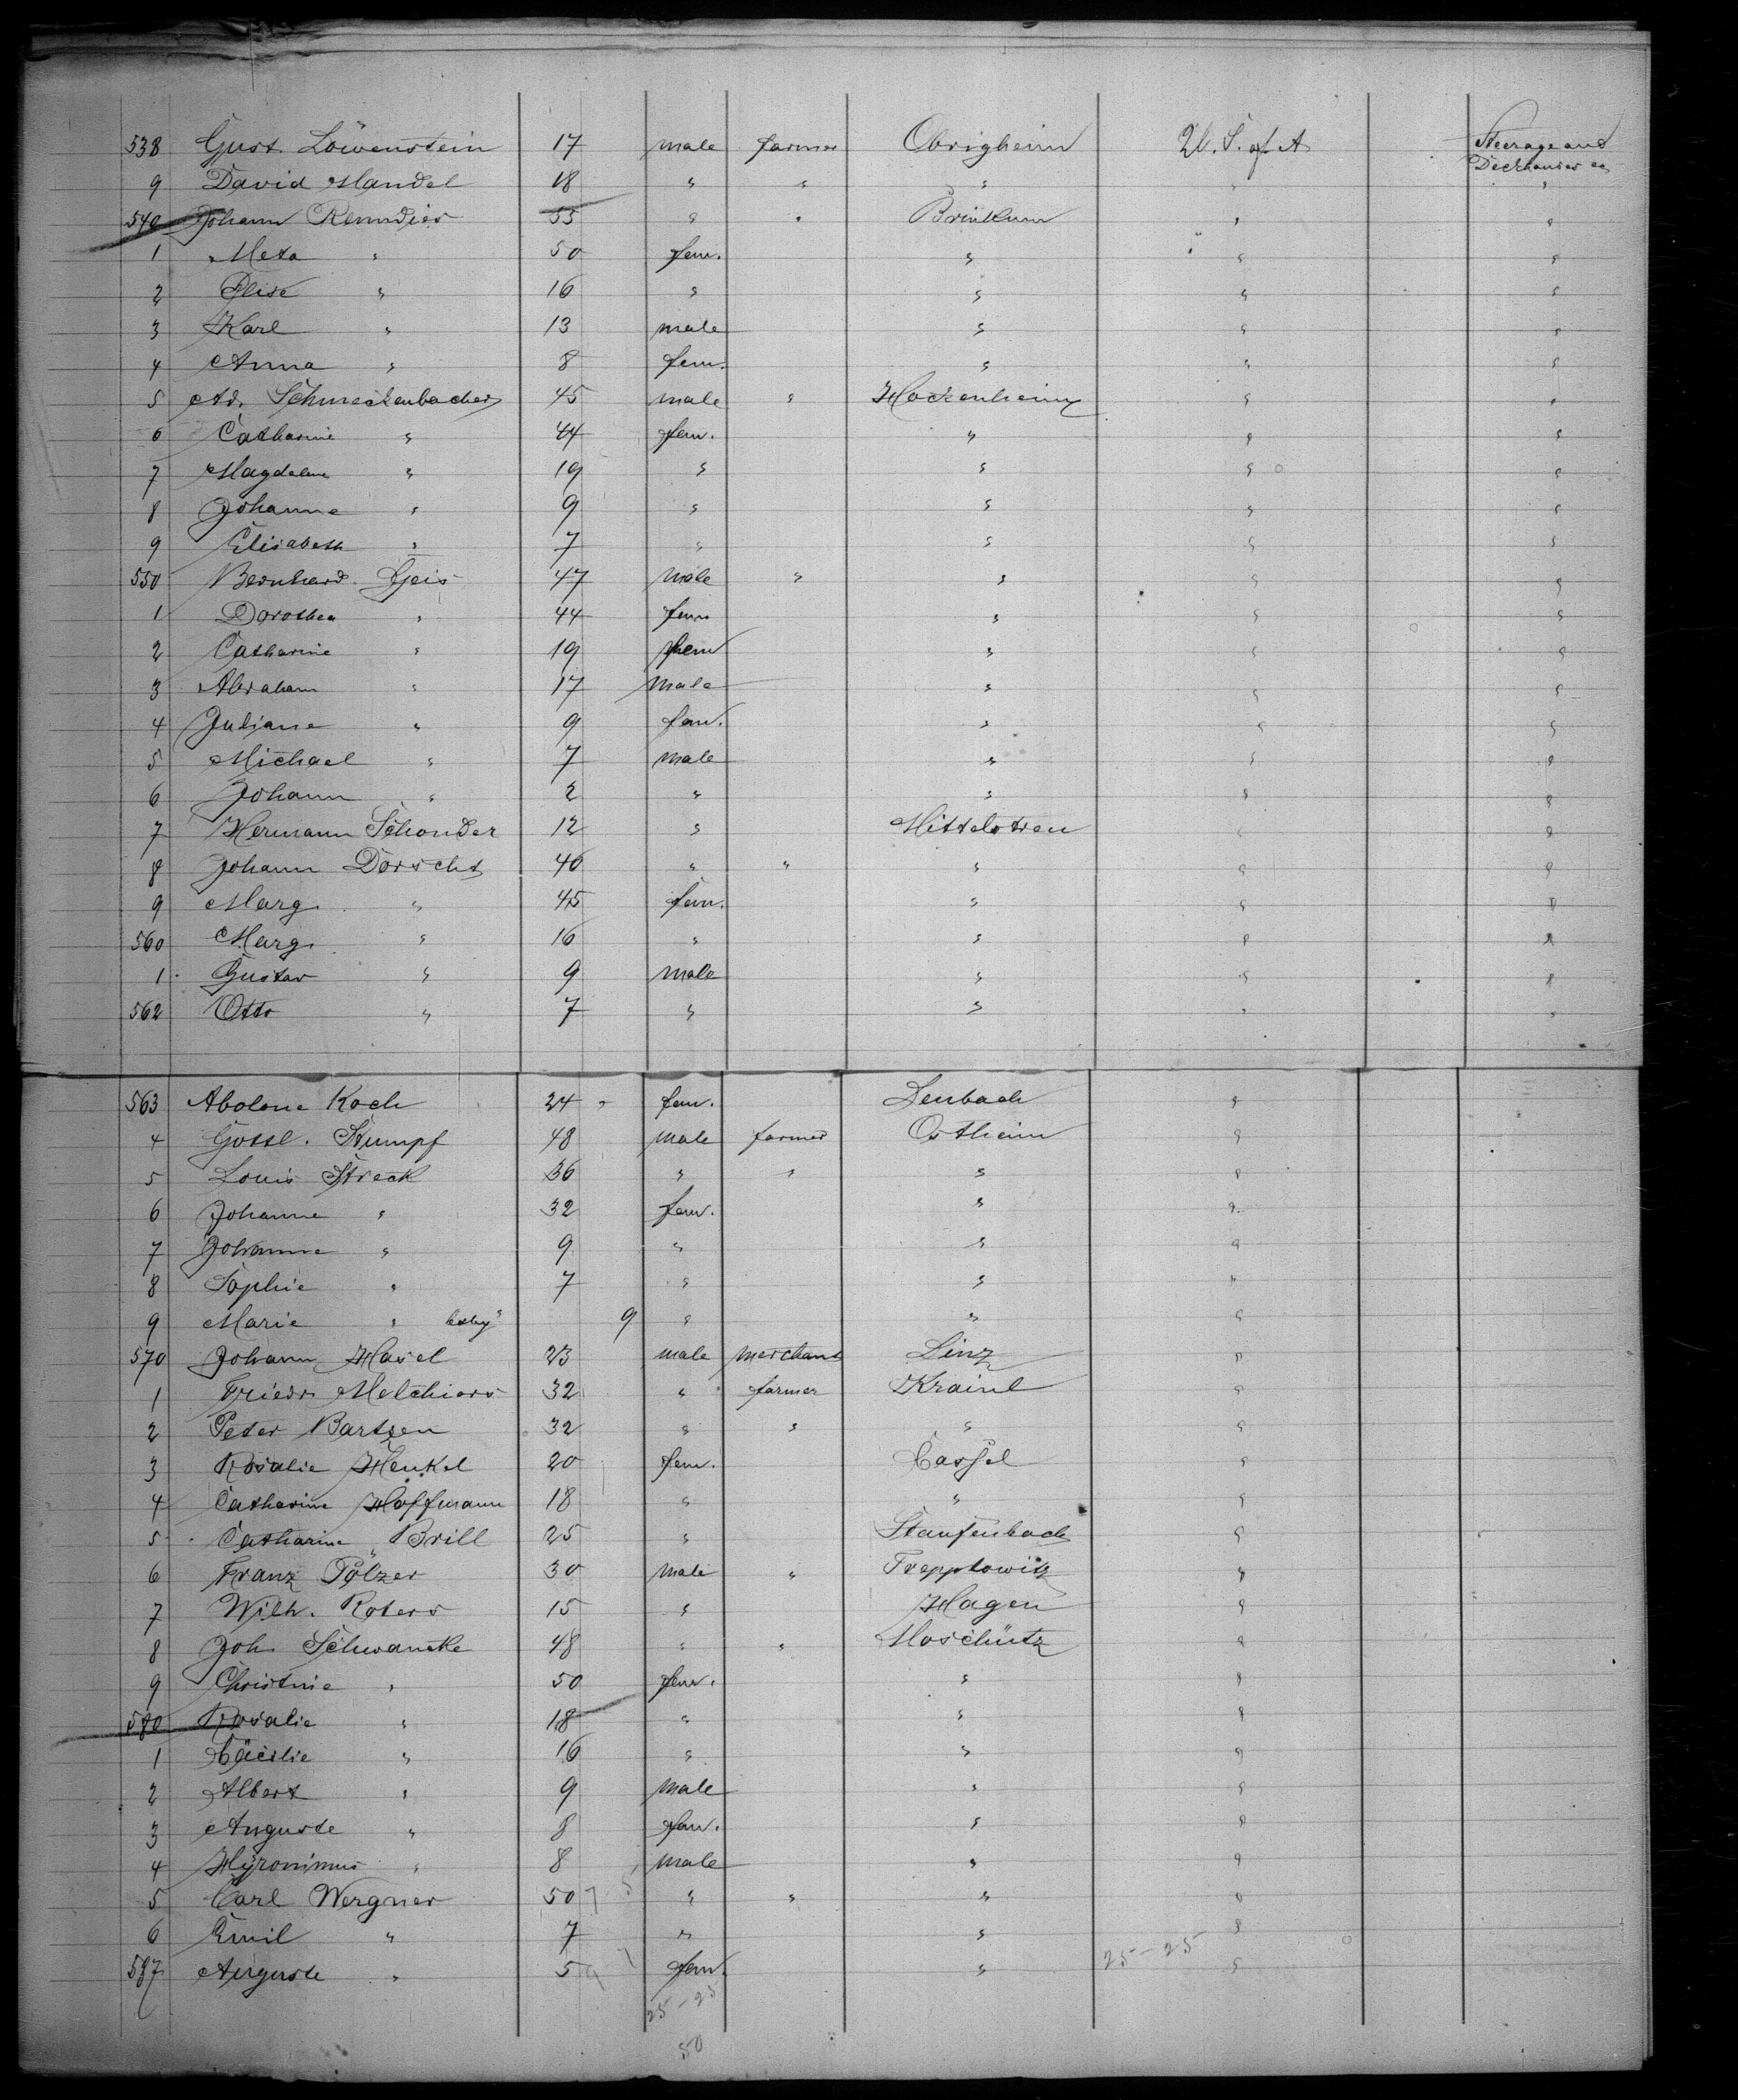 538 Gust. Löwenstein 17 male farmer Obrigheim U. S. of A Steerage and
Deckhouses
9 David Mandel 18 " " " " "
540 Johann Remndies 55 " " Brinkum " "
1 Meta " 50 fem. " " "
2 Elise " 16 " " " "
3 Karl " 13 male " " "
4 Anna " 8 fem. " " "
5 Ad. Schmeckenbacher 45 male " Hockenheim " "
6 Catharine " 44 fem. " " "
7 Magdalene " 19 " " " "
8 Johanne " 9 " " " "
9 Elisabeth " 7 " " " "
550 Bernhard Geis 47 male " " " "
1 Dorothea " 44 fem " " "
2 Catharine " 19 fem " " "
3 Abraham " 17 male " " "
4 Juliane " 9 fem. " " "
5 Michael " 7 male " " "
6 Johann " 2 " " " "
7 Hermann Schonder 12 " Mittelstreu " "
8 Johann Dorscht 46 " " " " "
9 Marg. " 45 fem. " " "
560 Marg. " 16 " " " "
1 Gustav " 9 male " " "
562 Otto " 7 " " " "
563 Abolone Koch 24 fem. Lenbach "
4 Gottl. Stumpf 48 male farmer Ostheim "
5 Louis Streck 36 " " " "
6 Johanne " 32 fem. " "
7 Johanne " 9 " " "
8 Sophie " 7 " " "
9 Marie " baby 9 " " "
570 Johann Hasel 23 male merchant Linz "
1 Friedr. Melchiors 32 " farmer Krainl "
2 Peter Bartzen 32 " " " "
3 Rosalie Henkel 20 fem. Cassel "
4 Catharine Hoffmann 18 " " "
5 Catharine Brill 25 " Staufenbach "
6 Franz Pölzer 30 male " Trepptowitz "
7 Wilh. Roters 15 " Hagen "
8 Joh. Schwancke 48 " " Moschütz "
9 Christine " 50 fem. " "
580 Rosalie " 18 " " "
1 Cäcilie " 16 " " "
2 Albert " 9 male " "
3 Auguste " 8 fem. " "
4 Hyronimus " 8 male " "
5 Carl Wergner 50 " " " "
6 Emil " 7 " " "
587 Auguste " 5 fem. " 25-25 "
25-25
50